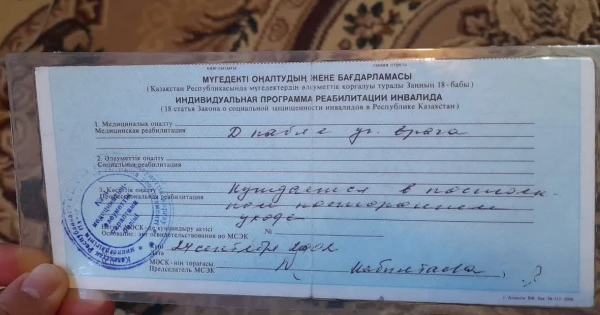 МҮГЕДЕКТІ ОҢАЛТУДЫҢ ЖЕКЕ БАҒДАРЛАМАСЫ
(Қазақстан Республикасында мүгедектердің әлеуметтік қорғалуы туралы Заңның 18 - бабы)
ИНДИВИДУАЛЬНАЯ ПРОГРАММА РЕАБИЛИТАЦИИ ИНВАЛИДА
(18 статья Закона о социальной защищенности инвалидов в Республике Казахстан)
1. Медициналық оңалту
Медицинская реабилитация
врача
2. Әлеуметтік оңалту
Социальная реабилитация
3. Кәсіптік оңалту Нуждается в постоян-
Профессиональная реабилитация ном постороннем
уходе
куәландыру актісі №
Основание: акт освидетельствования во МСЭК
24 сентября 2002
МӘСК - нің төрағасы
Председатель МСЭК